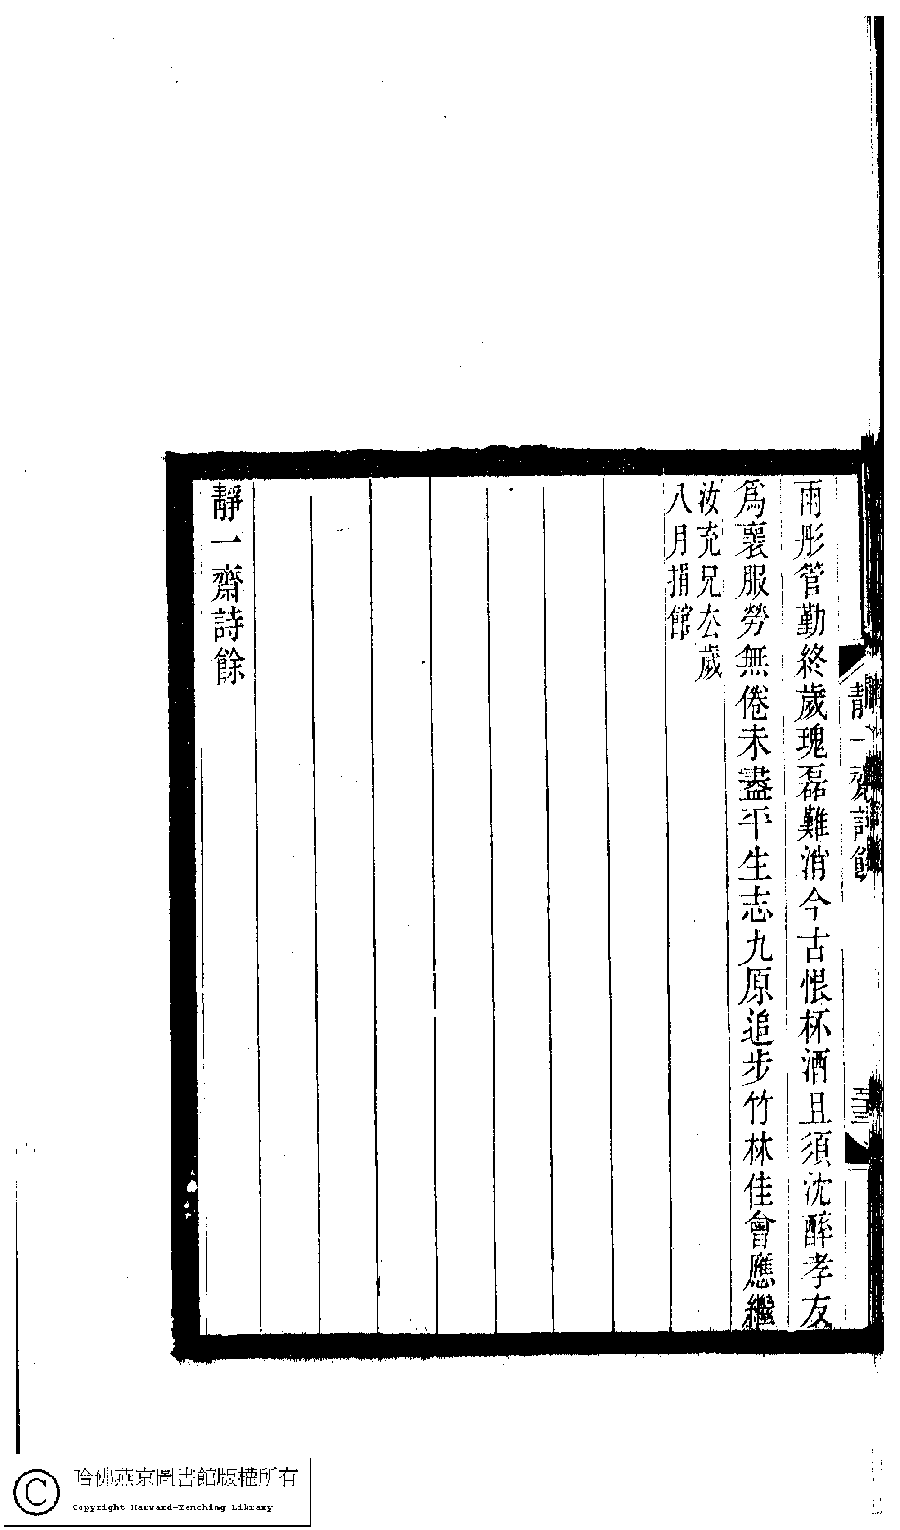 雨彤管勤終歲瑰磊難消今古恨杯酒且須沈醉孝友
為襄服勞無倦未盡平生志九原追步竹林佳會應繼
汝充兄厺歲
八月捐館
靜一齋詩餘
靜一齋詩餘
哈佛燕京圖書館版權所有
Copyright Harvard-Yenching Library